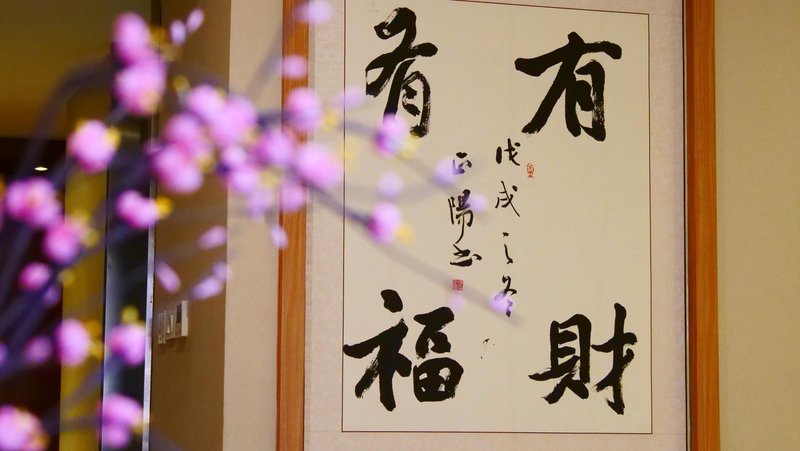 有財
有福
戊戌之冬
正陽书